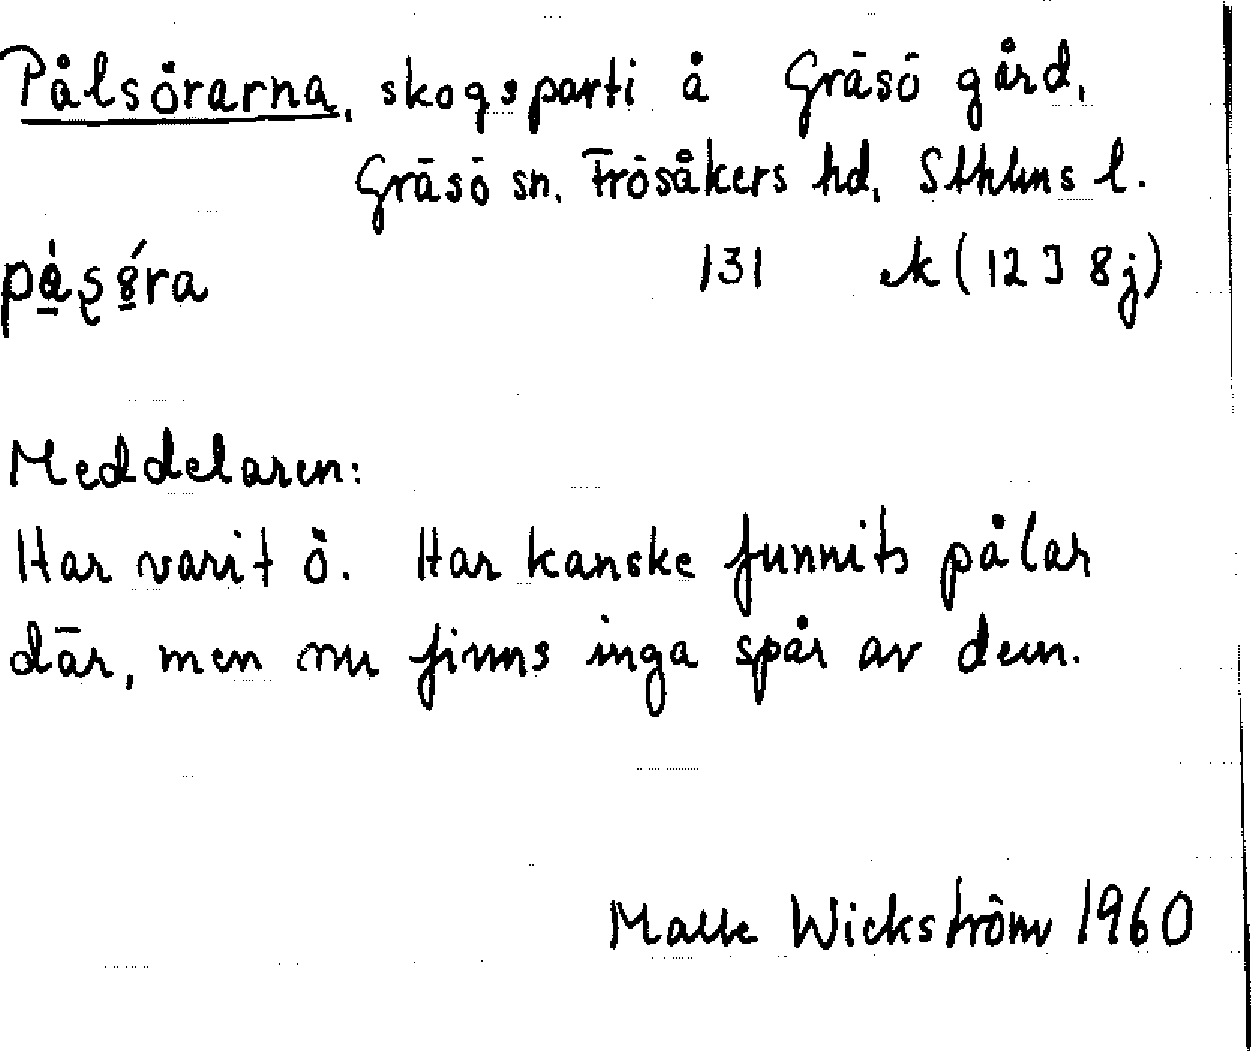 Pålsörarna, skogsparti å Gräsö gård,
Gräsö sn. Frösåkers hd, Sthlms l.
131 ek (12 I 8j)
Meddelaren:
Har varit ö. Har kanske funnits pålar
där, men nu finns inga spår av dem.
Malte Wickström 1960